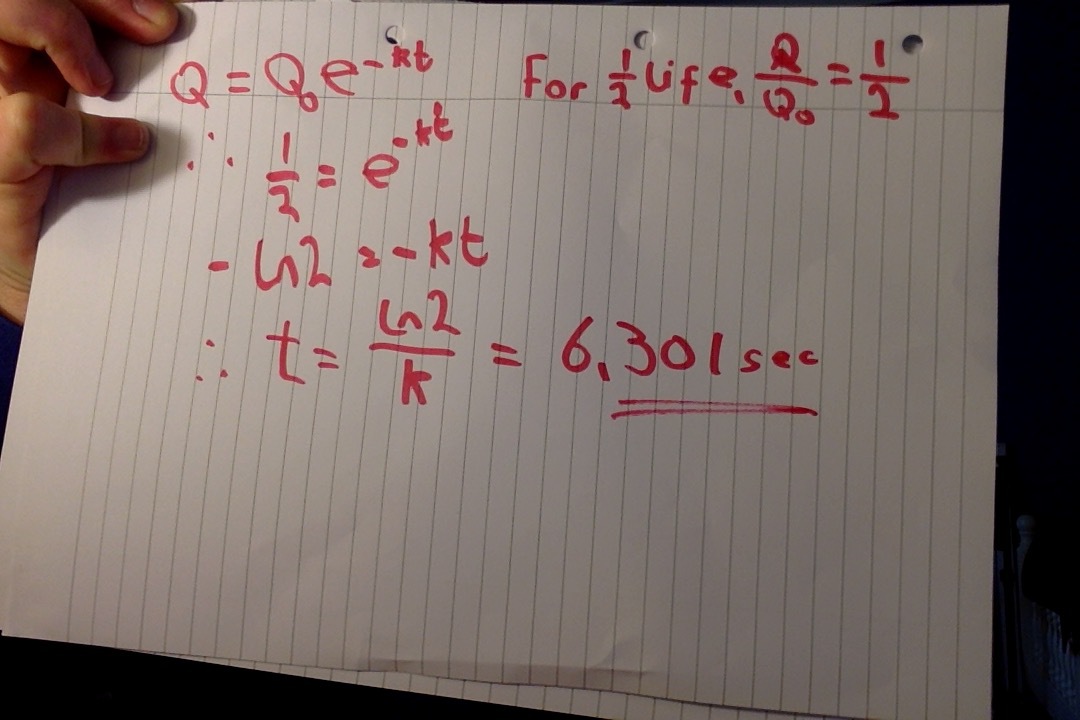 Q = Q₀e^-kt For ½ life, Q/Q₀ = 1/2
∴ 1/2 = e^-kt
- ln2 = -kt
∴ t = ln2/k = 6.301 sec